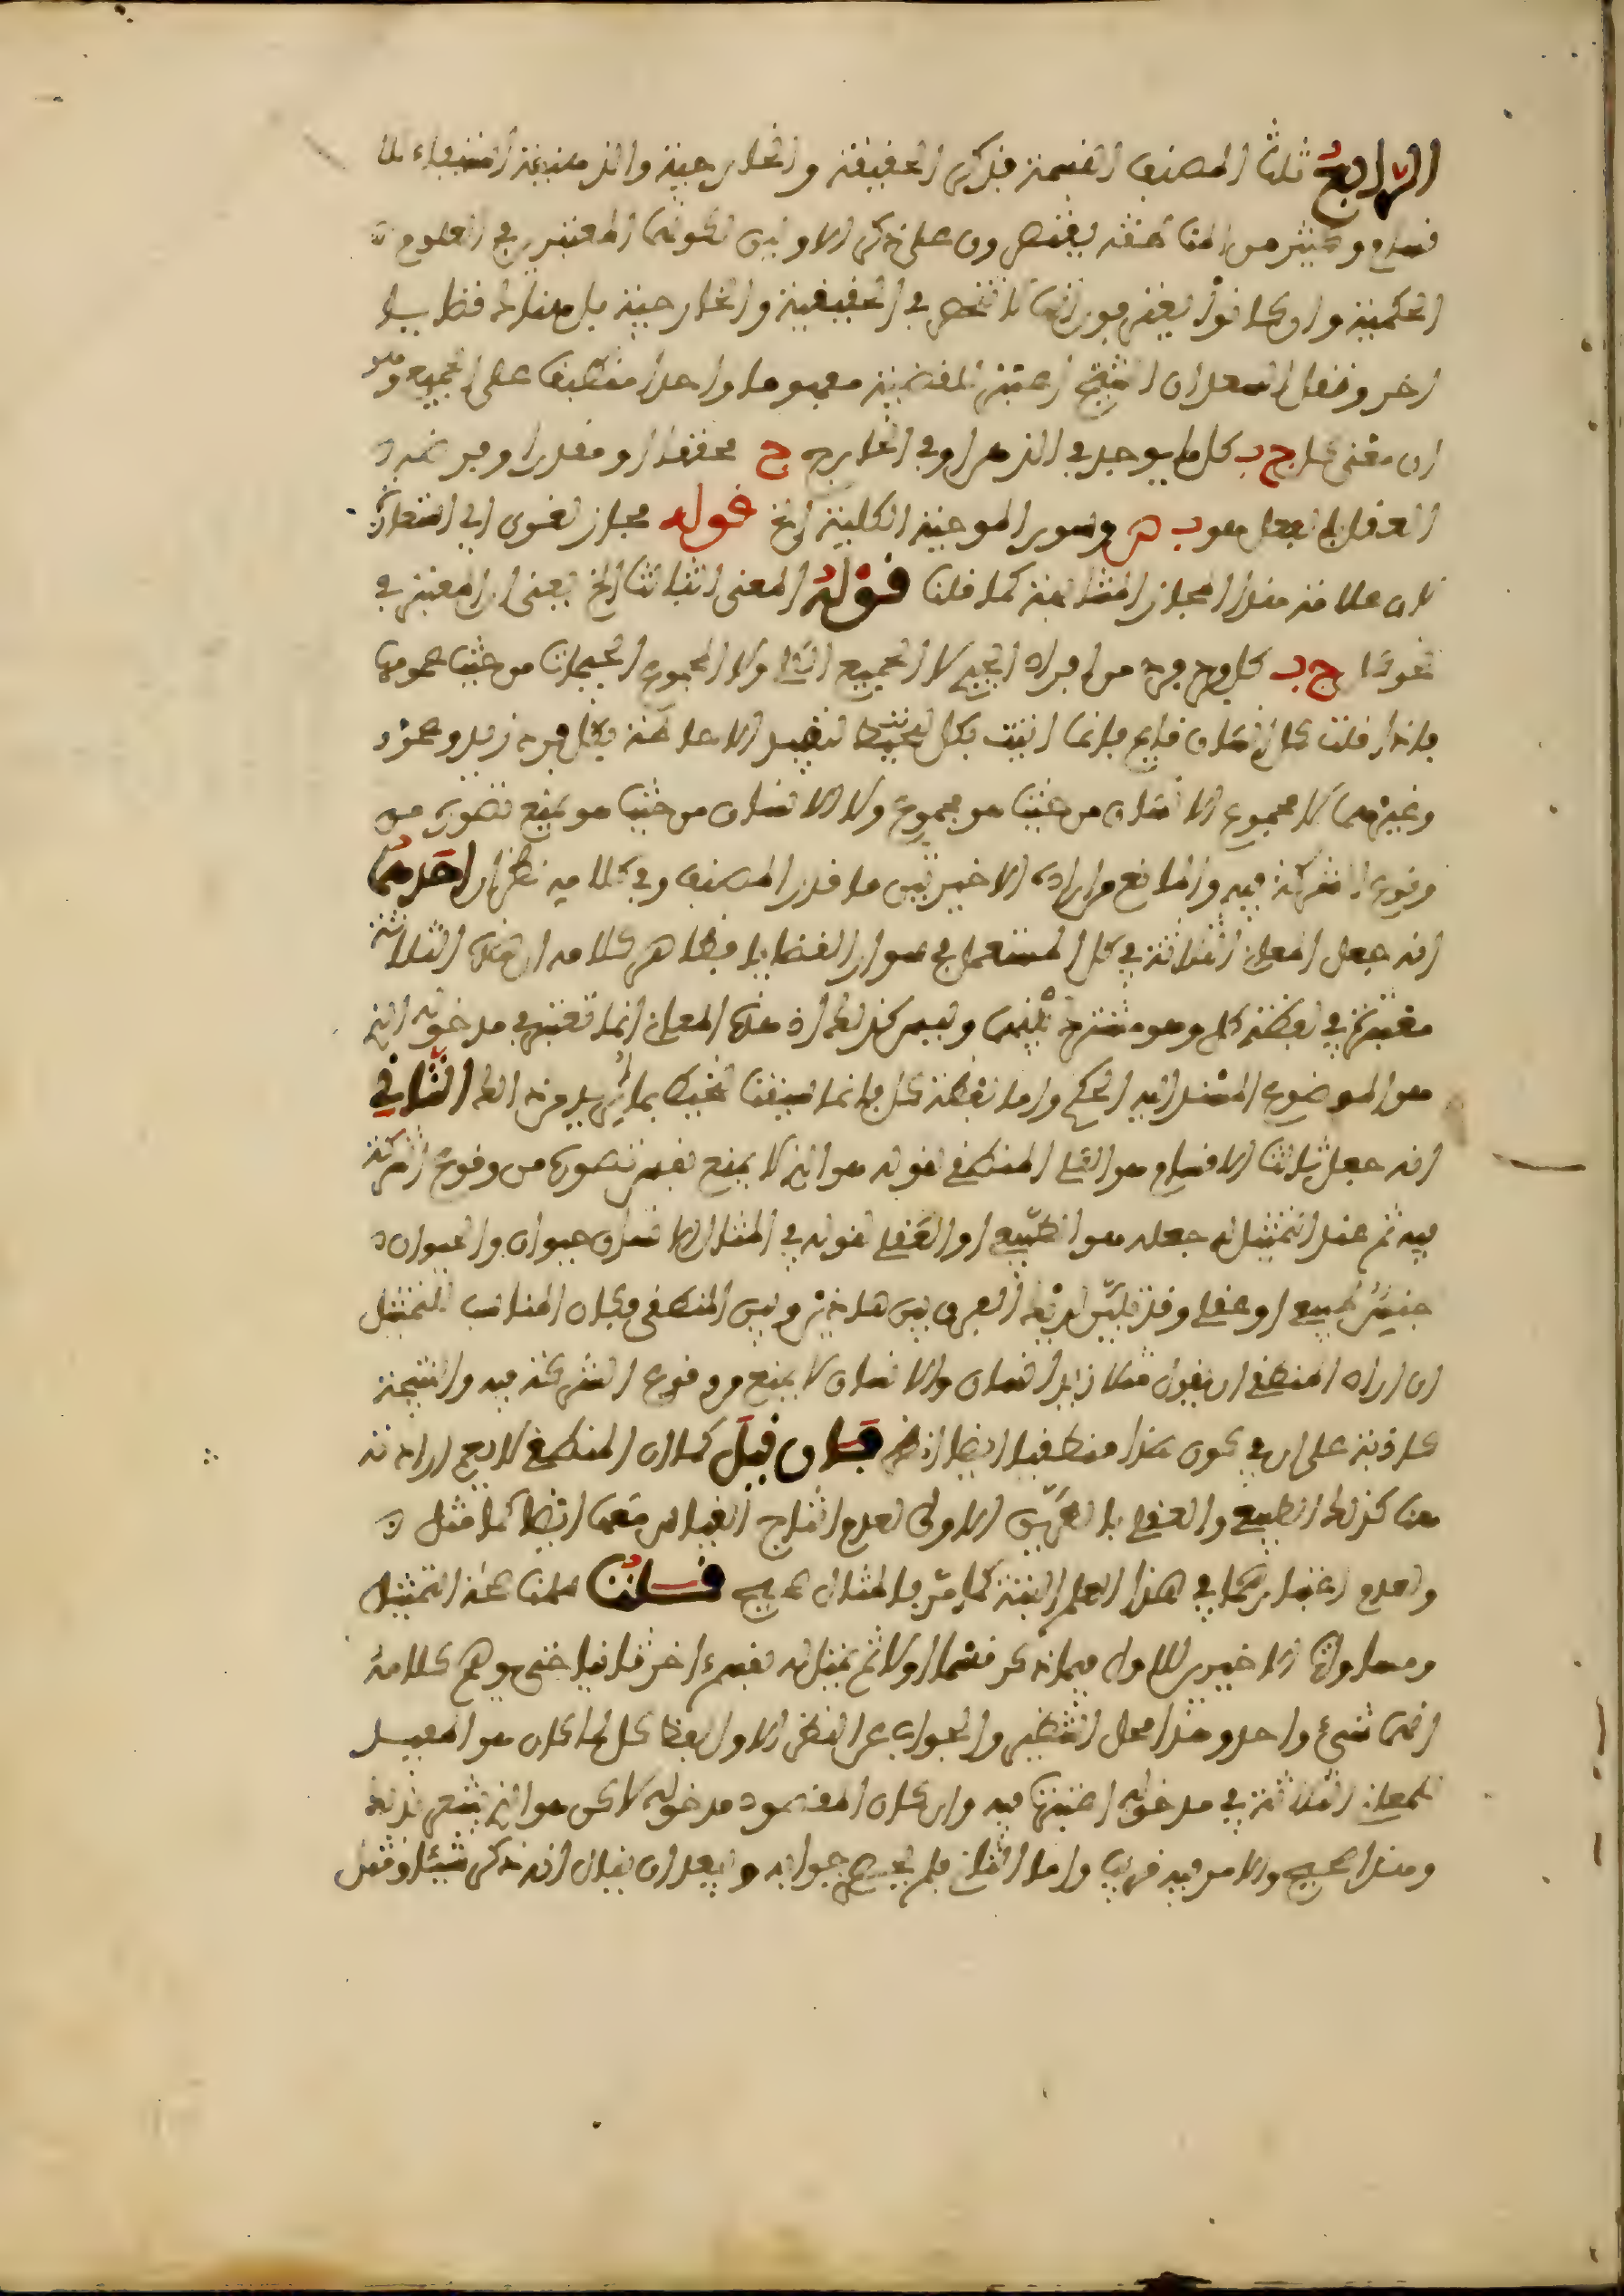 الرابع ثلث المصنف القسمة فذكر الحقيقة والخارجية والذهنية استيفاء للا
قسام وكثير من المناطقة يقتصرون على ذكر الاولين لكونهما المعتبرين في العلوم
الحكمية وان كانوا يعترفون انها لا تنحصر في الحقيقية والخارجية بل هناك قضايا
اخر ونقل السعد ان الشيخ اعتبر للقضية مفهوما واحدا منطبقا على الجميع وهو
ان معنى كل ج ب كل ما يوجد في الذهن او في الخارج ج محققا او مقدرا وفرضه
العقل بالفعل فهو ب ص وسور الموجبة الكلية الخ قوله مجاز لغوي اي استعارة
لان علاقة هذا المجاز المشابهة كما قلنا قوله المعنى الثالث الخ يعني ان المعتبر في
نحو كل ج ب كل فرد فرد من افراد الجيم لا الجيم الكلي ولا المجموع الجيمات من حيث عمومها
فاذا قلت كل انسان فانما اتيت بكل لتفيد الاحاطة بكل فرد زيد وعمرو
وغيرهما لا مجموع الانسان من حيث هو مجموع ولا الانسان من حيث هو يمنع تصوره من
وقوع الشركة فيه والمانع من ارادة الاخيرين ما قدر المصنف وفي كلامه نظر احدهما
انه جعل المعاني الثلاثة في كل المستعمل في سوار القضايا فظاهر كلامه ان هذه الثلاثة
معتبرة في لفظة كل وهو مشترك بينها وليس كذلك اذ هذه المعاني انما تعتبر في مدخوله الذي
هو الموضوع المسند اليه الحكم واما لفظة كل فانما سيقت تخبط بما يريد من ذلك الثاني
انه جعل ثالث الاقسام هو الكلي المنطقي لقوله هو الذي لا يمنع نفس تصوره من وقوع الشركة
فيه ثم عند التمثيل له جعله هو الطبيعي او العقلي لقوله في المثال الانسان حيوان والحيوان
جنس طبيعي او عقلي وقد تبين لديك الفرق بين هذين وبين المنطقي وكان المناسب للتمثيل
ان اراد المنطقي ان يقول مثلا زيد انسان والانسان لا يمنع من وقوع الشركة فيه والنتيجة
كاذبة على ان في كون هذا منطقيا ايضا نظر فان قيل كما ان المنطقي لا يصح ارادته
هنا كذلك الطبيعي والعقلي بالطريق الاولى لعدم انتاج القياس معهما ايضا كما مثل
ولعدم اعتبارهما في هذا العلم البتة كما مر فالمثال صحيح قلت هلما عند التمثيل
ومساواة الاخيرين للاول فيما ذكر قسما اولا ثم تمثيله بقسم اخر ثانيا حتى يوهم كلامه
انهما شيء واحد وهذا محل التنظير والجواب عن النظر الاول ان لفظ كل لما كان هو المفيد
للمعاني الثلاثة في مدخوله اعتبرها فيه وان كان المقصود مدخوله لاكن هو الذي يشعر بذلك
وهذا صحيح والامر فيه قريب واما الثاني فلم يتضح جوابه ويبعد ان يقال انه ذكر شيئا ومثل